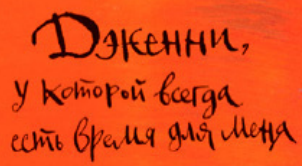 Дженни,
у которой всегда
есть время для меня